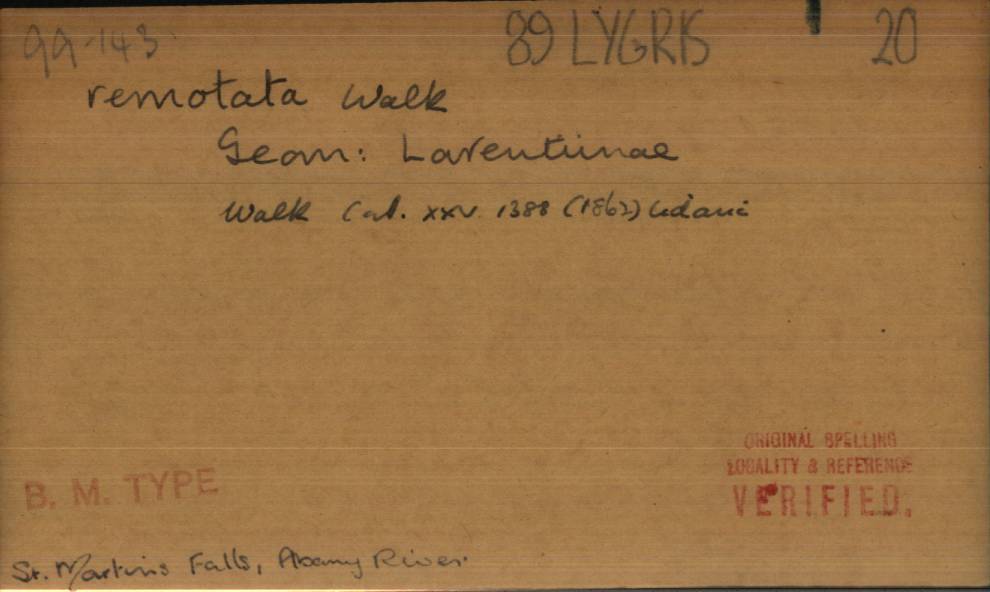 99-143 89 LYGRIS 20
remotata Walk
Geom: Larentiinae
Walk Cat. xxv. 1388 (1862) Cidaria
ORIGINAL SPELLING
LOCALITY & REFERENCE
VERIFIED.
B. M. TYPE
St. Martins Falls, Albany River